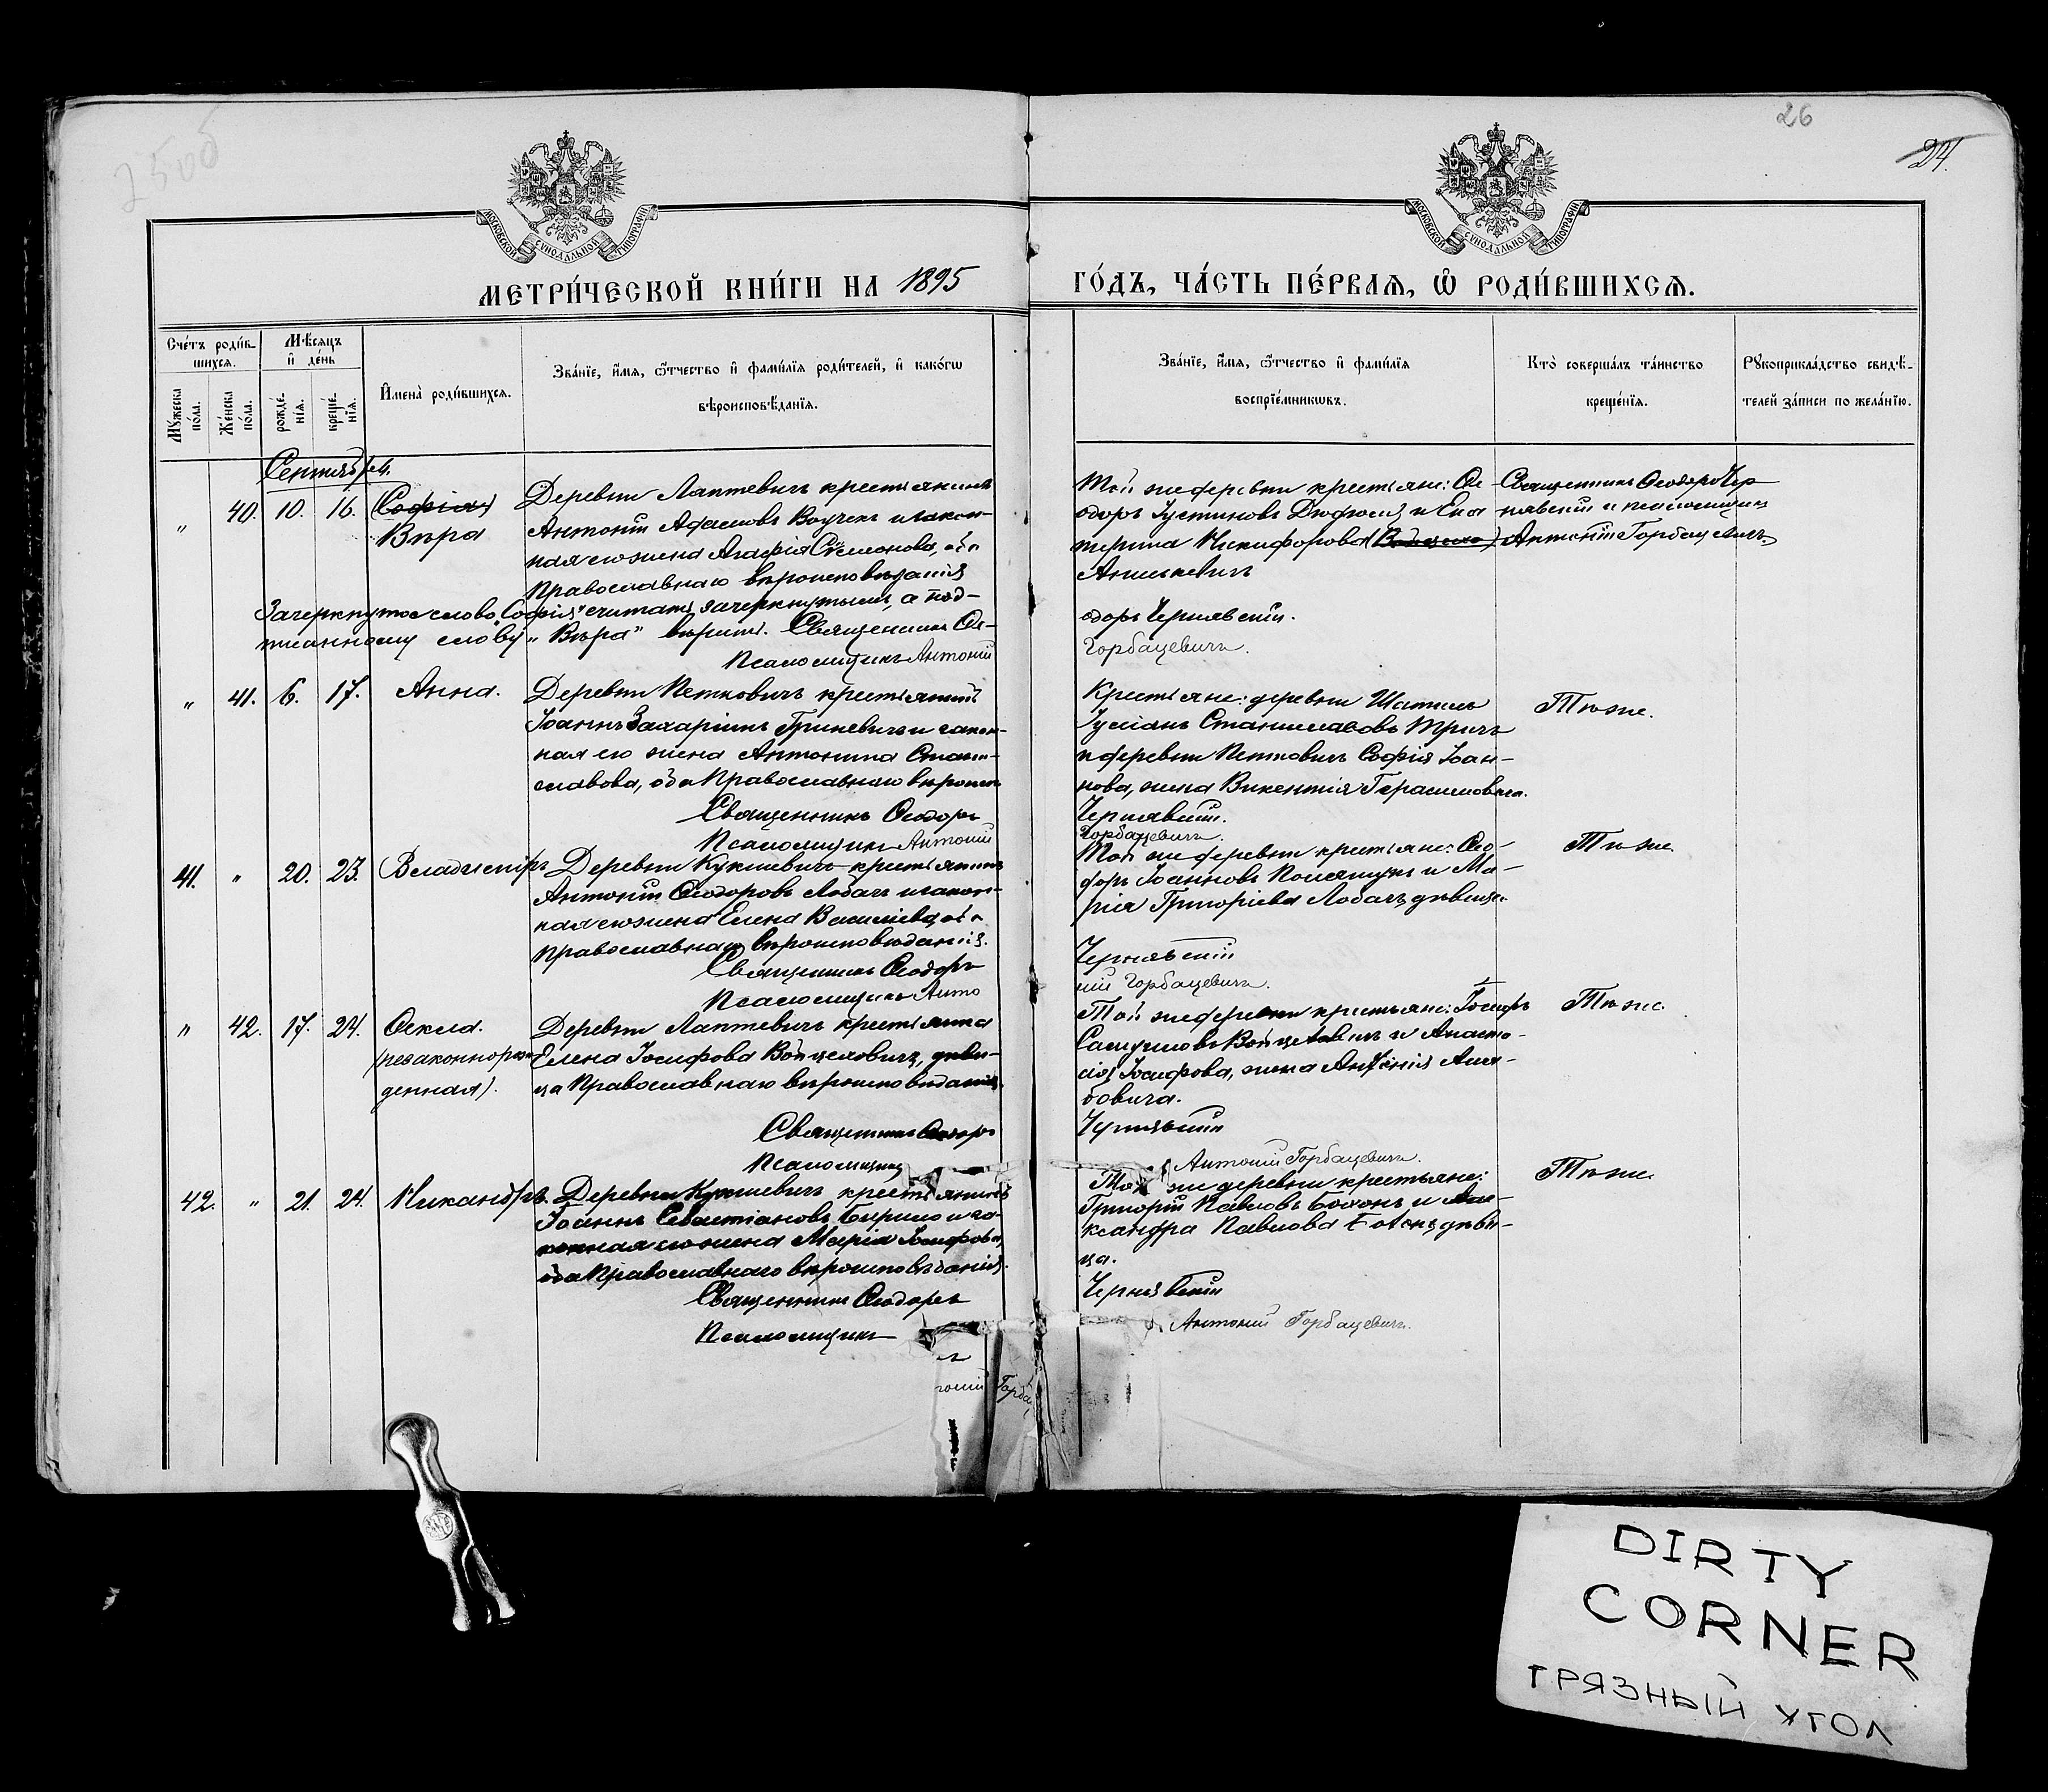 26
24.
МОСКОВСКОЙ СУНОДАЛЬНОЙ ТИПОГРАФІИ
МОСКОВСКОЙ СУНОДАЛЬНОЙ ТИПОГРАФІИ
МЕТРИ́ЧЕСКОЙ КНИ́ГИ НА 1895
ГО́ДЪ, ЧА́СТЬ ПЕ́РВАЯ, Ѡ҆ РОДИ́ВШИХСЯ.
Сче́тъ роди́в-
шихся.
Мѣ́сяцъ
и҆ де́нь
Му́жеска по́ла.
Же́нска по́ла.
рожде́-
нїя.
креще́-
нїя.
И҆мена̀ роди́вшихся.
Зва́нїе, и҆́мя, ѻ҆́тчество и҆ фами́лїя роди́телей, и҆ како́гѡ
вѣроисповѣ́данїя.
Зва́нїе, и҆́мя, ѻ҆́тчество и҆ фами́лїя
воспрїе́мникѡвъ.
Кто̀ соверша́лъ та́инство
креще́нїя.
Рукоприкла́дство свидѣ́-
телей за́писи по жела́нїю.
Сентябрь.
" 40. 10. 16. (Софія)
Вѣра
Деревни Лаптевичъ крестьянинъ
Антоній Адамовъ и закон-
ная его жена Агафія Семенова, оба
Православнаго вѣроисповѣданія
Зачеркнутое слово "Софія" считать зачеркнутымъ, а под-
писанному слову "Вѣра" вѣрить. Священникъ Ѳе-
Псаломщикъ Антоній
Той же деревни крестьяне: Ѳе-
одоръ Іустиновъ и Ека
терина Никифорова
одоръ Чернявскій.
Горбацевичъ.
Священникъ Ѳеодоръ Чер
нявскій и псаломщикъ
Антоній Горбацевичъ
" 41. 6. 17. Анна.
Деревни Петковичъ крестьянинъ
Іоаннъ Захаріинъ Гриневичъ и закон-
ная его жена Антонина Стани-
славова, оба Православнаго вѣроисп.
Священникъ Ѳеодоръ
Псаломщикъ Антоній
Крестьяне: деревни
Іуліанъ Станиславовъ
и деревни Петковичъ Софія Іоан-
нова, жена Викентія Герасимовича.
Чернявскій.
Горбацевичъ.
Тѣ же.
41. " 20. 23. Владиміръ
Деревни Кукшевичъ крестьянинъ
Антоній Ѳеодоровъ Лобачъ и закон-
ная его жена Елена Васильева, оба
Православнаго вѣроисповѣданія.
Священникъ Ѳеодоръ
Псаломщикъ Анто
Той же деревни крестьяне: Ѳео-
доръ Іоанновъ и Ма-
рія Григоріева Лобачъ, дѣвица.
Чернявскій
ній Горбацевичъ.
Тѣ же.
" 42. 17. 24. Ѳекла.
(незаконнорож-
денная).
Деревни Лаптевичъ крестьянка
Елена Іосифова Войцеховичъ, дѣви-
ца Православнаго вѣроисповѣданія.
Священникъ Ѳеодоръ
Псаломщикъ
Той же деревни крестьяне: Іосифъ
Самуиловъ Войцеховичъ и Анаста-
сія Іосифова, жена
бовича.
Чернявскій
Антоній Горбацевичъ.
Тѣ же.
42. " 21. 24. Никандръ.
Деревни Кукшевичъ крестьянинъ
Іоаннъ Севастіановъ Бирило и за-
конная его жена Марія Іосифова,
оба Православнаго вѣроисповѣданія.
Священникъ Ѳеодоръ
Псаломщикъ
Той же деревни крестьяне:
Григорій Павловъ и Але-
ксандра Павлова дѣви-
ца.
Чернявскій
Антоній Горбацевичъ.
Тѣ же.
DIRTY
CORNER
ГРЯЗНЫЙ УГОЛ